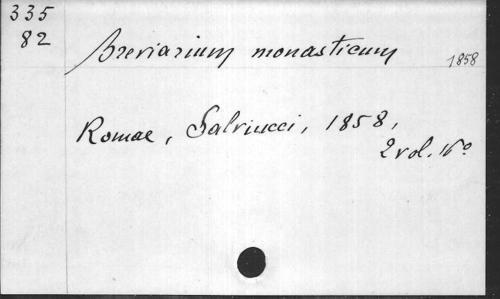 335
82
Breviarium monasticum
1858
Romae, Salviucci, 1858,
2 vol. 16º